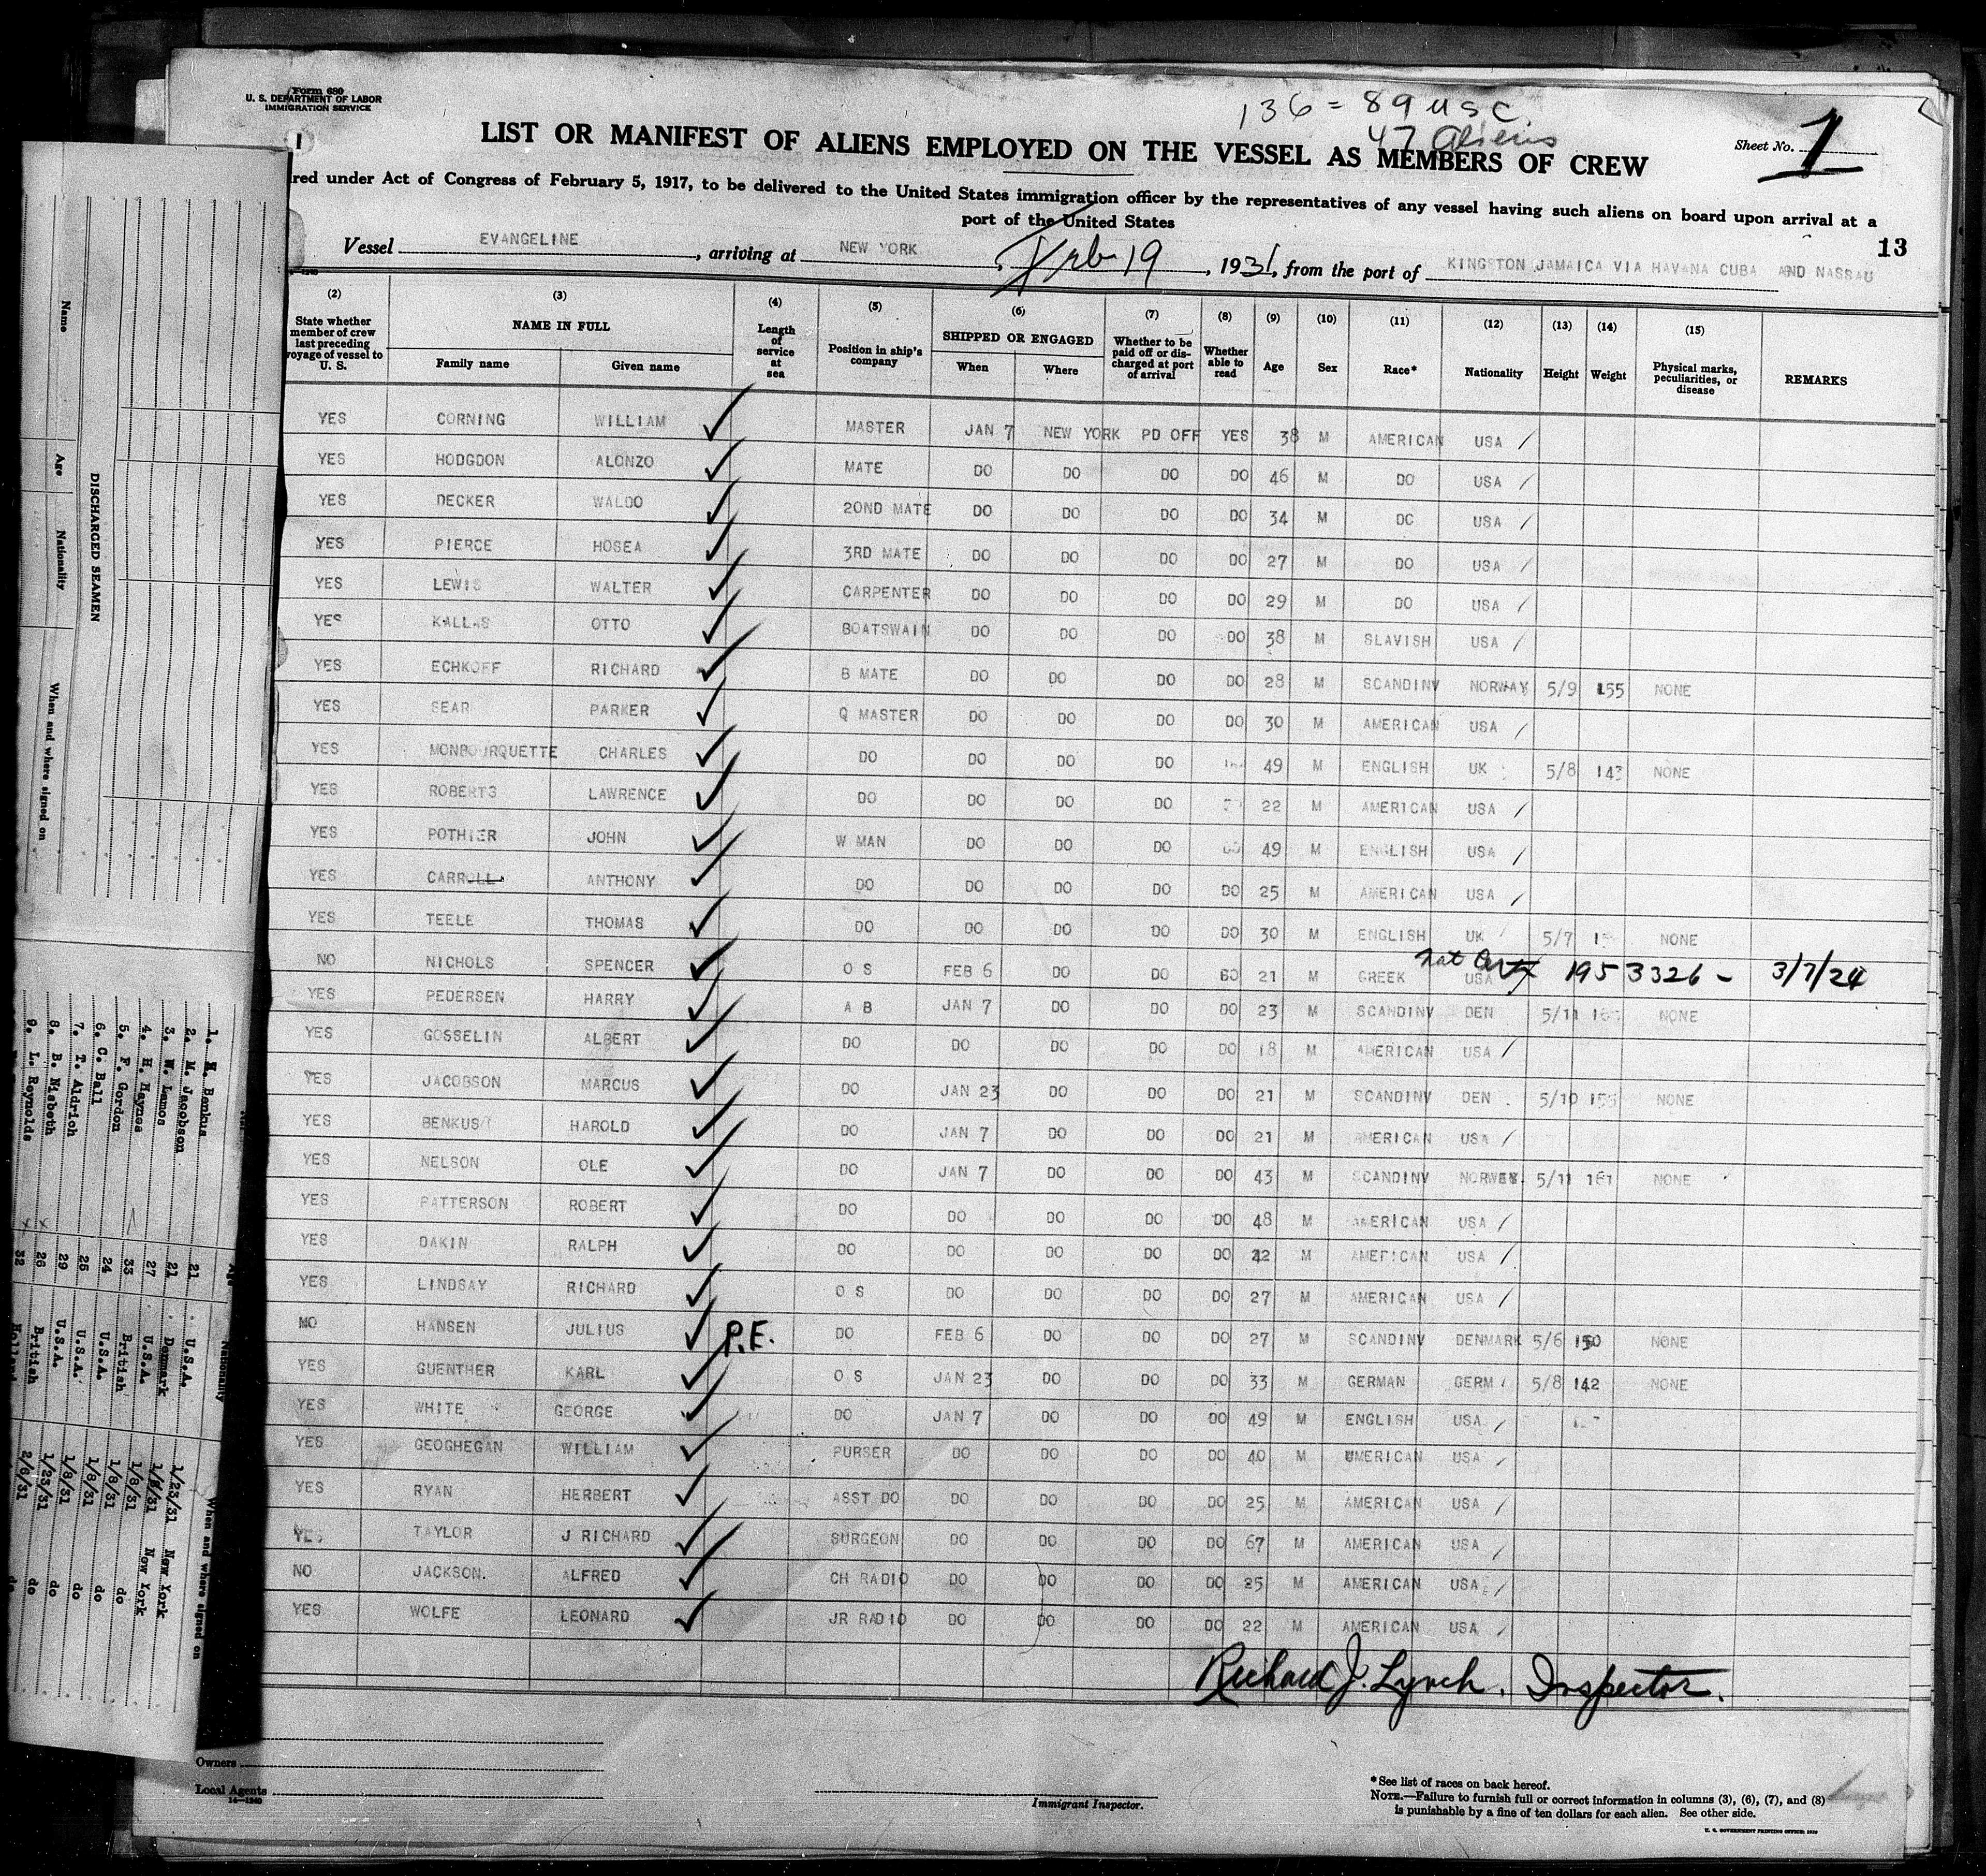 Form 680
U. S. DEPARTMENT OF LABOR
IMMIGRATION SERVICE
136 = 89 USC
47 Aliens
Sheet No. 1
LIST OR MANIFEST OF ALIENS EMPLOYED ON THE VESSEL AS MEMBERS OF CREW
red under Act of Congress of February 5, 1917, to be delivered to the United States immigration officer by the representatives of any vessel having such aliens on board upon arrival at a
port of the United States
13
Vessel EVANGELINE, arriving at NEW YORK, Feb 19, 1931, from the port of KINGSTON JAMAICA VIA HAVANA CUBA AND NASSAU
(2) (3) (4) (5) (6) (7) (8) (9) (10) (11) (12) (13) (14) (15)
State whether member of crew last preceding voyage of vessel to U. S. NAME IN FULL Family name Given name Length of service at sea Position in ship's company SHIPPED OR ENGAGED When Where Whether to be paid off or discharged at port of arrival Whether able to read Age Sex Race* Nationality Height Weight Physical marks, peculiarities, or disease REMARKS
YES CORNING WILLIAM MASTER JAN 7 NEW YORK PD OFF YES 38 M AMERICAN USA
YES HODGDON ALONZO MATE DO DO DO DO 46 M DO USA
YES DECKER WALDO 2OND MATE DO DO DO DO 34 M DO USA
YES PIERCE HOSEA 3RD MATE DO DO DO DO 27 M DO USA
YES LEWIS WALTER CARPENTER DO DO DO DO 29 M DO USA
YES KALLAS OTTO BOATSWAIN DO DO DO DO 38 M SLAVISH USA
YES ECHKOFF RICHARD B MATE DO DO DO DO 28 M SCANDINV NORWAY 5/9 155 NONE
YES SEAR PARKER Q MASTER DO DO DO DO 30 M AMERICAN USA
YES MONBOURQUETTE CHARLES DO DO DO DO 49 M ENGLISH UK 5/8 143 NONE
YES ROBERTS LAWRENCE DO DO DO DO 22 M AMERICAN USA
YES POTHIER JOHN W MAN DO DO DO DO 49 M ENGLISH USA
YES CARROLL ANTHONY DO DO DO DO DO 25 M AMERICAN USA
YES TEELE THOMAS DO DO DO DO DO 30 M ENGLISH UK 5/7 NONE
NO NICHOLS SPENCER O S FEB 6 DO DO DO 21 M GREEK USA nat Cert 1953326 - 3/7/24
YES PEDERSEN HARRY A B JAN 7 DO DO DO 23 M SCANDINV DEN 5/11 NONE
YES GOSSELIN ALBERT DO DO DO DO DO 18 M AMERICAN USA
YES JACOBSON MARCUS DO JAN 23 DO DO DO 21 M SCANDINV DEN 5/10 155 NONE
YES BENKUS HAROLD DO JAN 7 DO DO DO 21 M AMERICAN USA
YES NELSON OLE DO JAN 7 DO DO DO 43 M SCANDINV NORWEY 5/11 161 NONE
YES PATTERSON ROBERT DO DO DO DO DO 48 M AMERICAN USA
YES DAKIN RALPH DO DO DO DO DO 42 M AMERICAN USA
YES LINDSAY RICHARD O S DO DO DO DO 27 M AMERICAN USA
NO HANSEN JULIUS P.E. DO FEB 6 DO DO DO 27 M SCANDINV DENMARK 5/6 150 NONE
YES GUENTHER KARL O S JAN 23 DO DO DO 33 M GERMAN GERM 5/8 142 NONE
YES WHITE GEORGE DO JAN 7 DO DO DO 49 M ENGLISH USA
YES GEOGHEGAN WILLIAM PURSER DO DO DO DO 40 M UMERICAN USA
YES RYAN HERBERT ASST DO DO DO DO DO 25 M AMERICAN USA
YES TAYLOR J RICHARD SURGEON DO DO DO DO 67 M AMERICAN USA
NO JACKSON. ALFRED CH RADIO DO DO DO DO 25 M AMERICAN USA
YES WOLFE LEONARD JR RADIO DO DO DO DO 22 M AMERICAN USA
Richard J. Lynch. Inspector.
Owners
Local Agents
14-1240
Immigrant Inspector.
*See list of races on back hereof.
NOTE.—Failure to furnish full or correct information in columns (3), (6), (7), and (8)
is punishable by a fine of ten dollars for each alien. See other side.
U. S. GOVERNMENT PRINTING OFFICE:
DISCHARGED SEAMEN
Name Age Nationality When and where signed on
Age Nationality When and where signed on
1. H. Benkus 21 U.S.A. 1/23/31 New York
2. M. Jacobson 21 Denmark
3. W. Lamos 27 U.S.A. New York
4. H. Haynes 33 British 1/8/31 do
5. F. Gordon 24 U.S.A. 1/8/31 do
6. C. Ball 25 U.S.A. 1/8/31 do
7. T. Aldrich 29 U.S.A. 1/8/31 do
8. B. Nisbeth 26 British 1/23/31 do
9. L. Reynolds 32 2/6/31 do